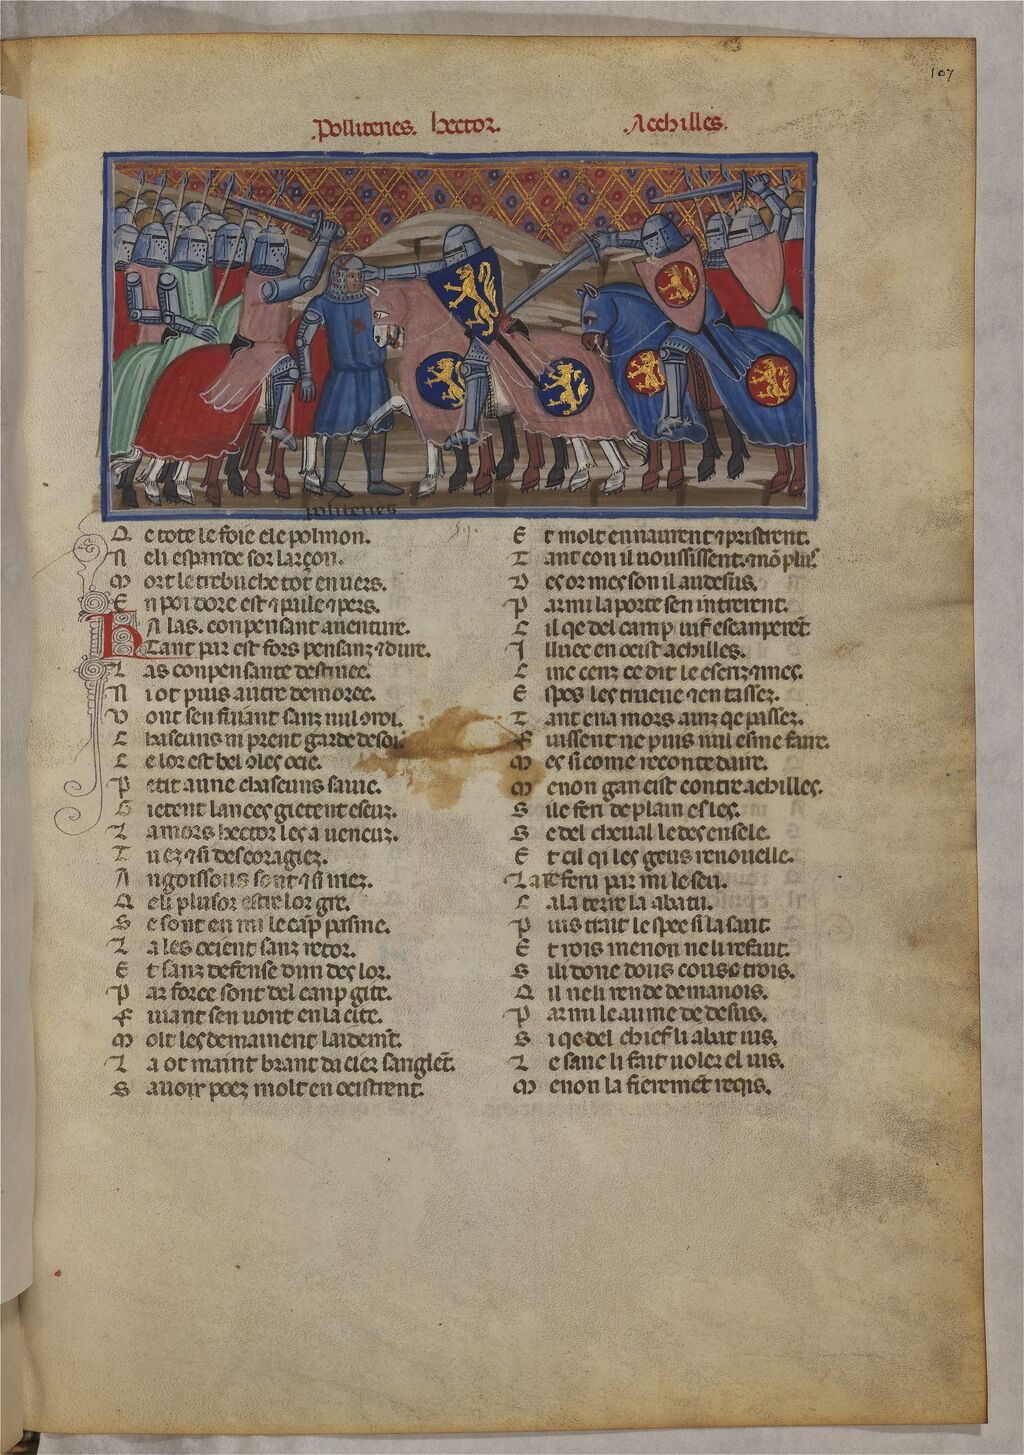 107
.Pollitenes. hector. .Acchilles.
politenes
Q e tote le foie ele polmon.
A eli espande sor larçon.
M ort le trebuche tot enuers.
E n poi dore est ⁊ pale ⁊ pers.
H A las. con pensant auenture.
Tant par est fors pensanz ⁊ dure.
L as con pensante destinee.
N i ot puis autre demoree.
V ont sen fuiant sanz nul
C hascuns ni prent garde de soi.
C e lor est bel
P etit aune chascuns sauie.
G ietent lances gietent escuz.
L amors hector les a uencuz.
T uez ⁊ si descoragiez.
A ngoissous sont ⁊ si inez.
Q eli plusor estre lor gre.
S e sont en mi le cāp pasme.
L a les ocient sanz retor.
E t sanz defense dun des lor.
P ar force sont del camp gite.
F uiant sen uont en la cite.
M olt les demainent laidem̄t.
L a ot maint brant dacier sanglēt.
S auoir poez molt en ocistrent.
E t molt en naurent ⁊ pristrent.
T ant con il uoussissent. ⁊ nō plus.
V es or mes son il au desus.
P armi la porte sen intrerent.
C il qe del camp uif escanperēt.
I lluec en ocist achilles.
C inc cenz ce dit le escriz ⁊ mes.
E spes les trueue ⁊ en tassez.
T ant en a mors ainz qe passez.
F uissent ne puis nul esme faire.
M es si come reconte daire.
M enon gancist contre achilles.
S i le feri de plain esles.
S e del cheual le desensele.
E t cil qi les geus renouelle.
L are feru par mi le seu.
C ala terre la abatu.
P uis trait le spee si la saut.
E t rois menon ne li refaut.
S i li done dous cous o trois.
Q il ne li rende demanois.
P armi le aume de desus.
S i qe del chief li abat ius.
L e sanc li fait uoler el uis.
M enon la fieremēt reqis.